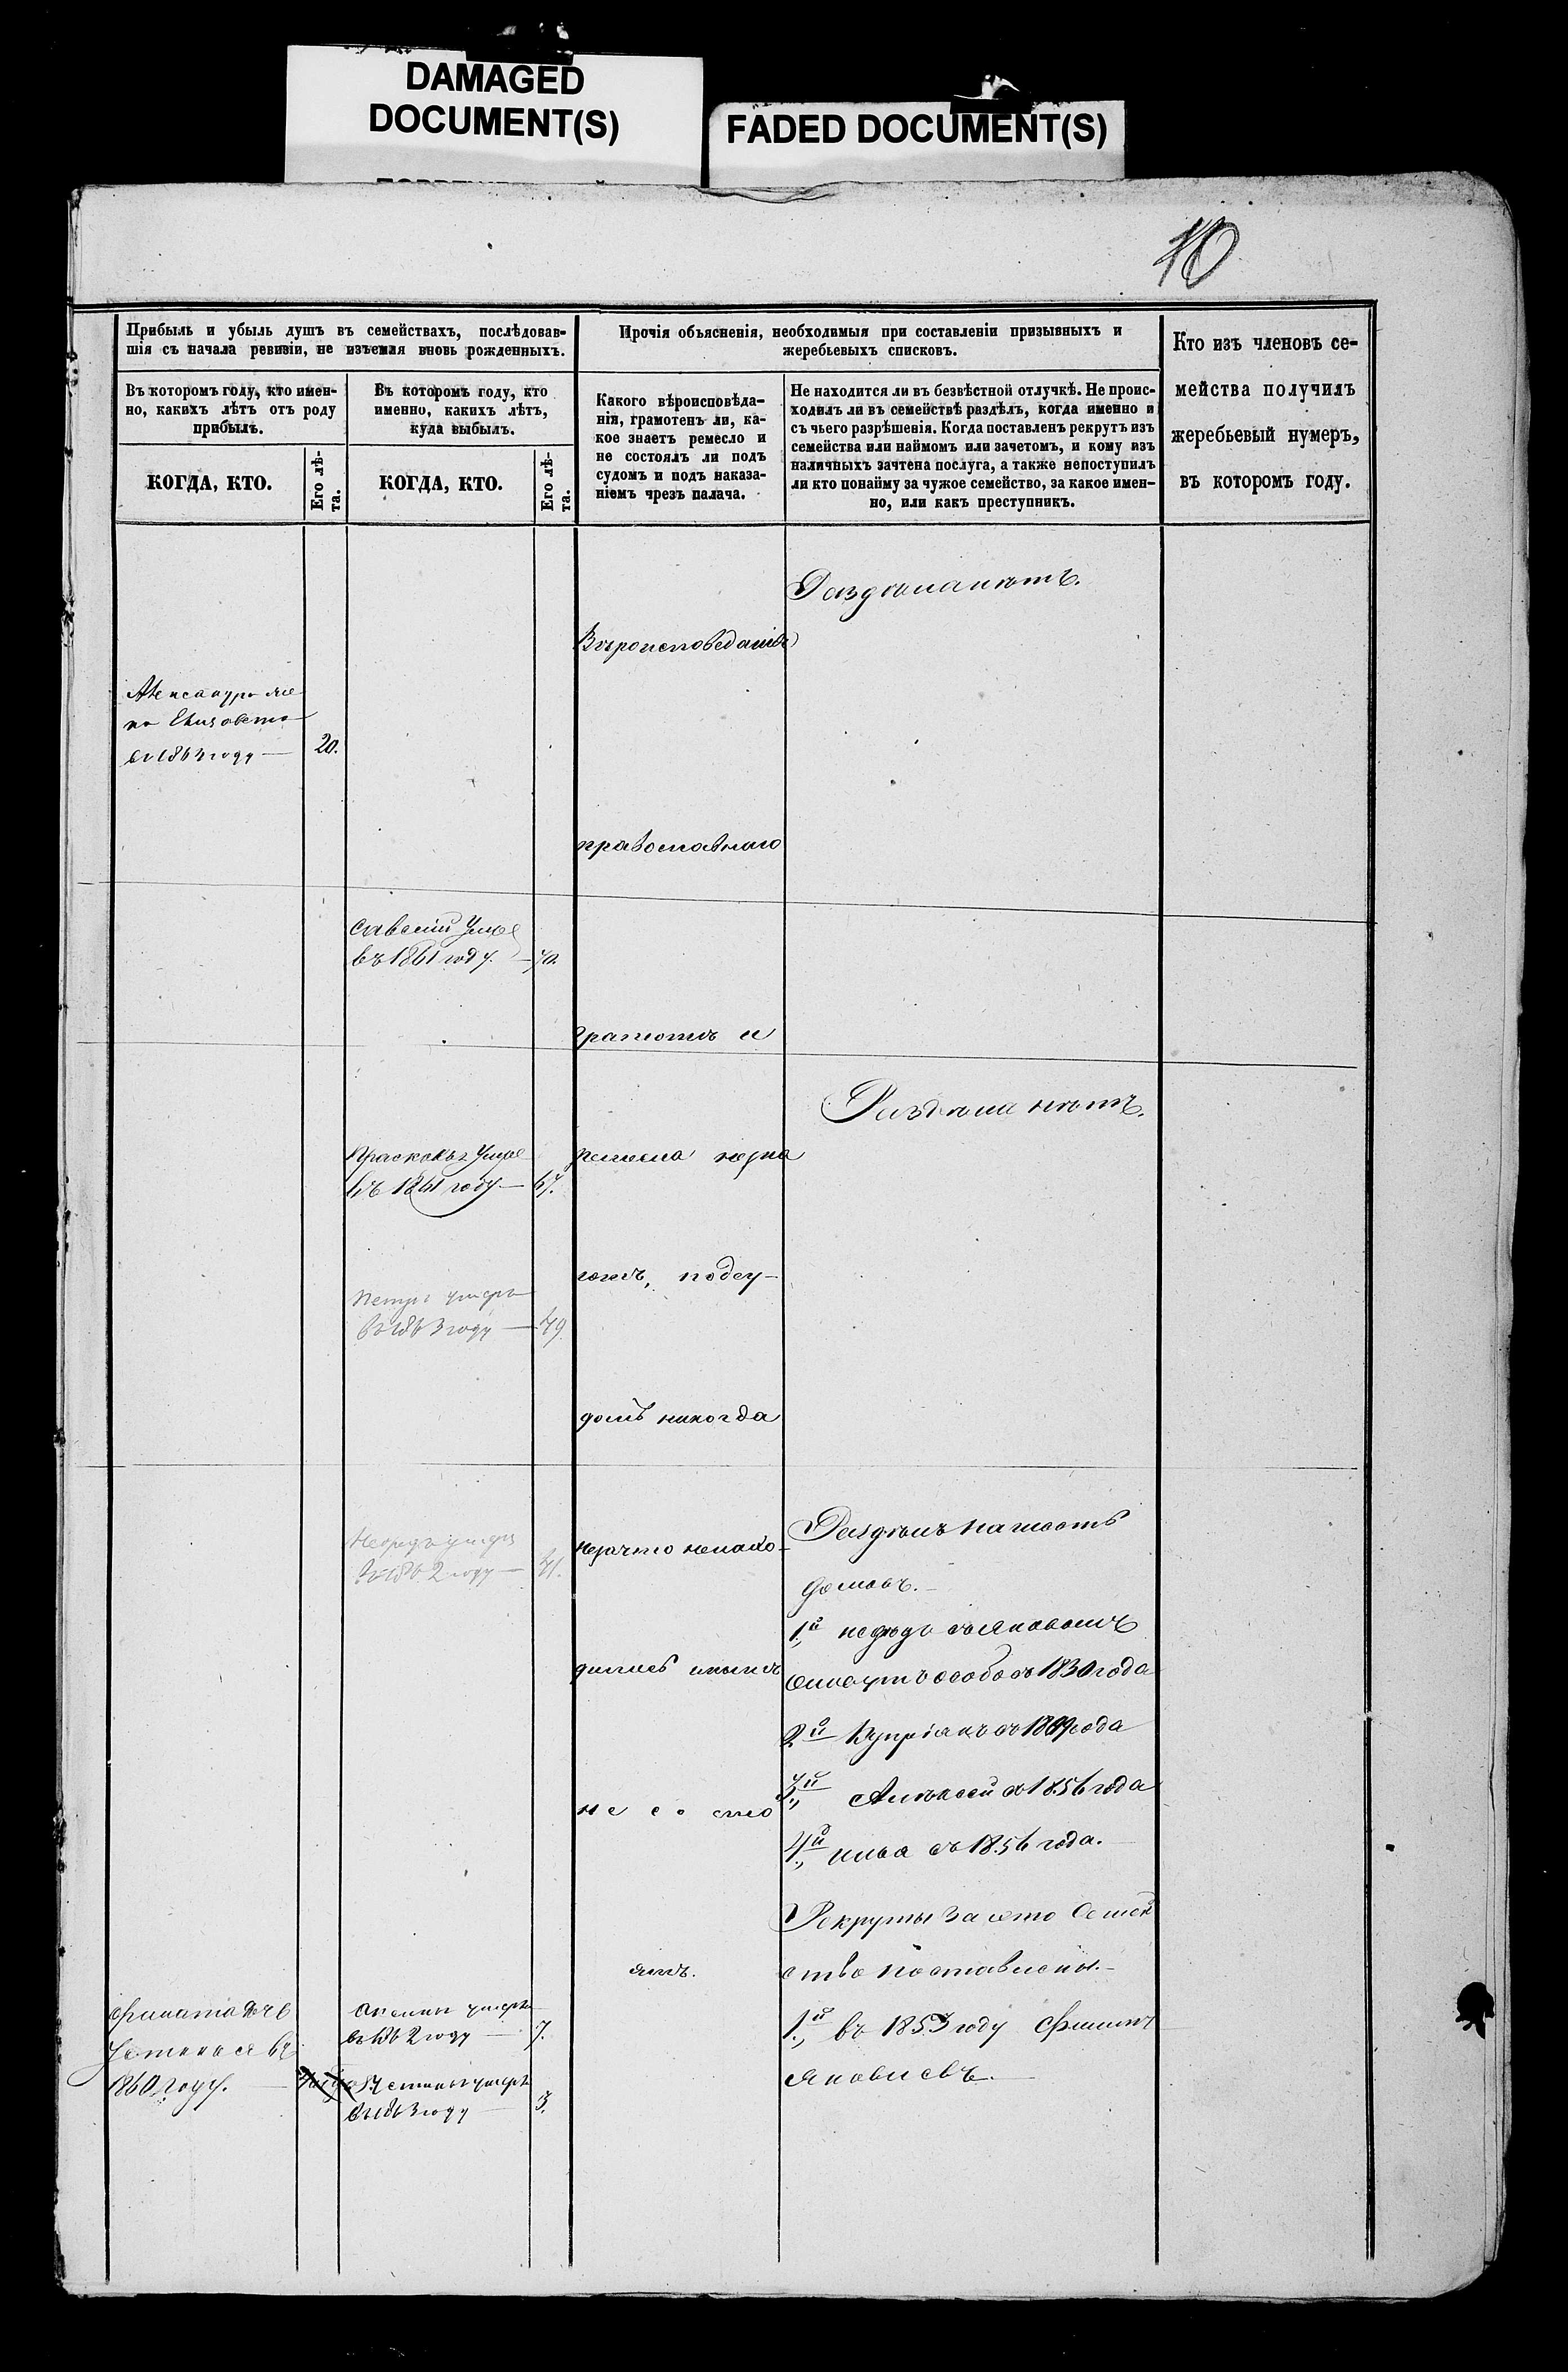 DAMAGED
DOCUMENT(S)
FADED DOCUMENT(S)
10
Прибыль и убыль душъ въ семействахъ, послѣдовав-
шія съ начала ревизіи, не изъемля вновь рожденныхъ.
Въ которомъ году, кто имен-
но, какихъ лѣтъ отъ роду
прибылъ.
Въ которомъ году, кто
именно, какихъ лѣтъ,
куда выбылъ.
КОГДА, КТО.
Его лѣ-
та.
КОГДА, КТО.
Его лѣ-
та.
Прочія объясненія, необходимыя при составленіи призывныхъ и
жеребьевыхъ списковъ.
Какого вѣроисповѣда-
нія, грамотенъ ли, ка-
кое знаетъ ремесло и
не состоялъ ли подъ
судомъ и подъ наказа-
ніемъ чрезъ палача.
Не находится ли въ безвѣстной отлучкѣ. Не проис-
ходилъ ли въ семействѣ раздѣлъ, когда именно и
съ чьего разрѣшенія. Когда поставленъ рекрутъ изъ
семейства или наймомъ или зачетомъ, и кому изъ
наличныхъ зачтена послуга, а также непоступилъ
ли кто понайму за чужое семейство, за какое имен-
но, или какъ преступникъ.
Кто изъ членовъ се-
мейства получилъ
жеребьевый нумеръ,
въ которомъ году.
Раздѣла нѣтъ.
Вѣроисповеданія
Александра же
на Елизавета
въ 1863 году — 20.
православнаго
Савелій Уме
въ 1861 году. — 70.
грамотѣ и
Раздѣла нѣтъ.
Прасковья Уме
въ 1861 году — 67.
ремесла незна
ютъ, подсу-
Петръ умеръ
въ 1863 году — 49.
домъ никогда
Раздѣлъ на шесть
домовъ.
умеръ
въ 1862 году — 31.
незачто ненахо-
1й съ Яковомъ
дились иныхъ
живутъ особо съ 1830 года
2й Купріянъ съ года
3й Алексѣй съ 1856 года
не со сто
4й Илья съ 1856 года.
Рекруты за его Семей
ятъ.
ство поставлены.
Филата дочь
Устинья въ
1860 году.
умерла
въ 1862 году — 7.
Устинья умерла
въ 1863 году — 3.
1й въ 1853 году Филипъ
Яковлевъ.